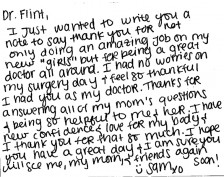 Dr. Flint,
I just wanted to write you a
note to say thank you for not
only doing an amazing job on my
new "girls" but for being a great
doctor all around. I had no worries on
my surgery day & feel so thankful
I had you as my doctor. Thanks for
answering all of my mom's questions
& being so helpful to me & her. I have
new confidence & love for my body &
I thank you for that so much. I hope
you have a great day & I am sure you
will see me, my mom, & friends again
soon!
☺ Samy